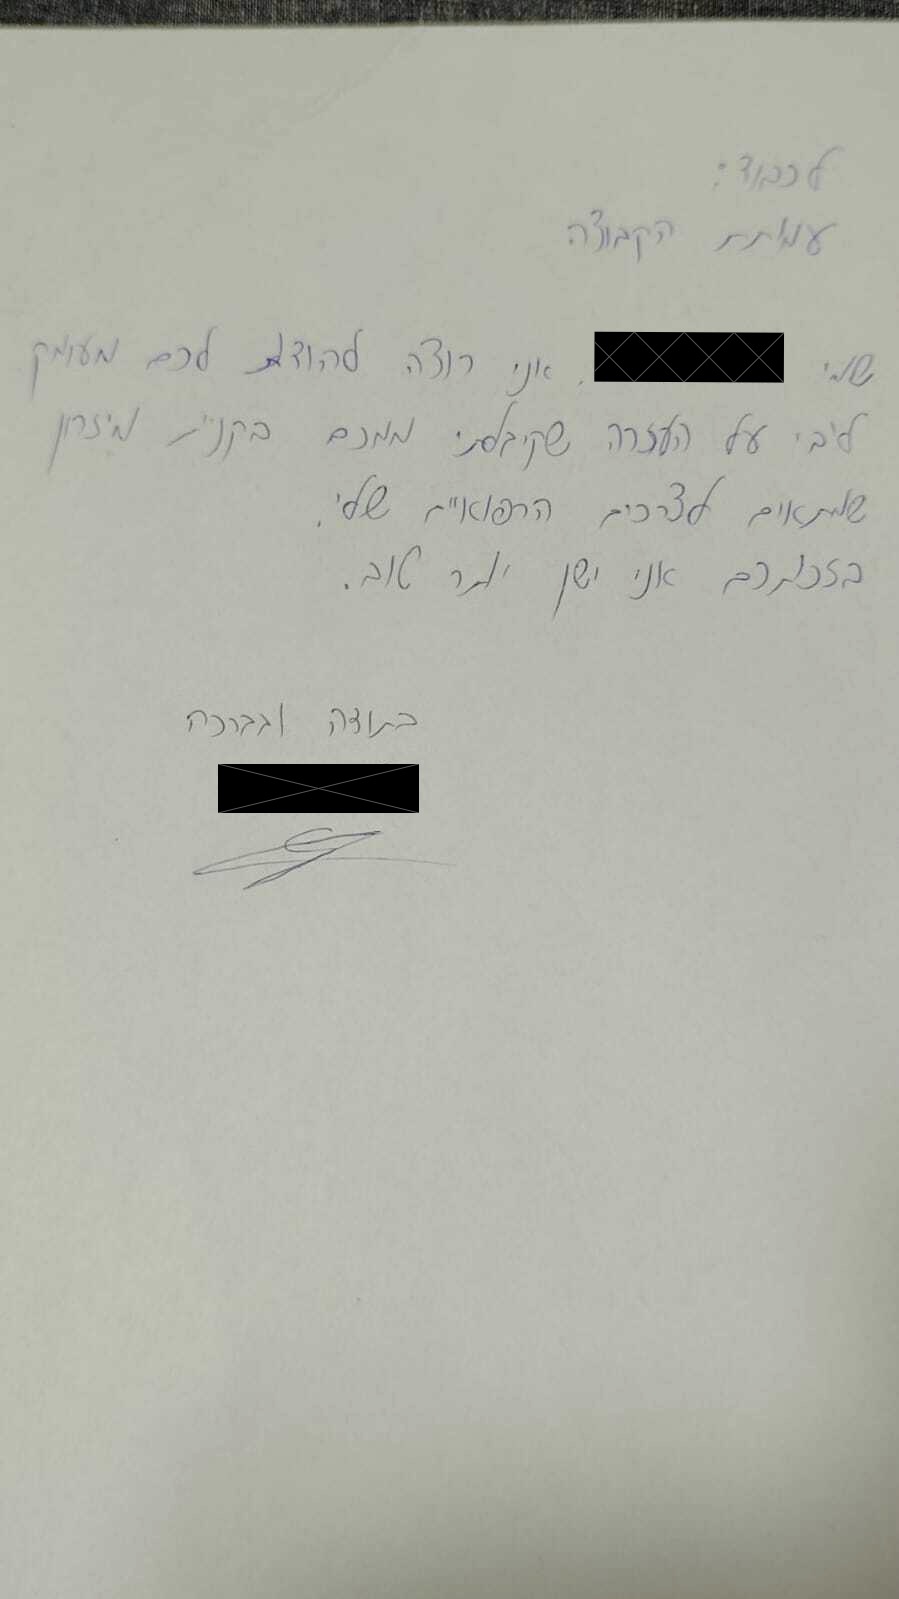 לכבוד:
עמיתת הקבוצה
שמי . אני רוצה להודות לכם מעומק
ליבי על העזרה שקיבלתי ממכם בקניית מיזרון
שמתאים לצרכים הרפואיים שלי.
בזכותכם אני ישן יותר טוב.
בתודה ובברכה